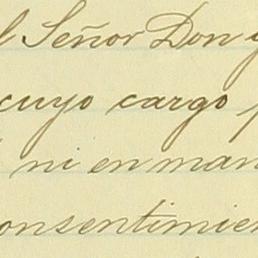 l Señor Don y
cuyo cargo p
ni en man
onsentimien